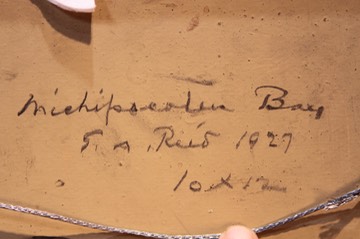 Michipocoten Bay
G. A. Reid 1927
10 x 12